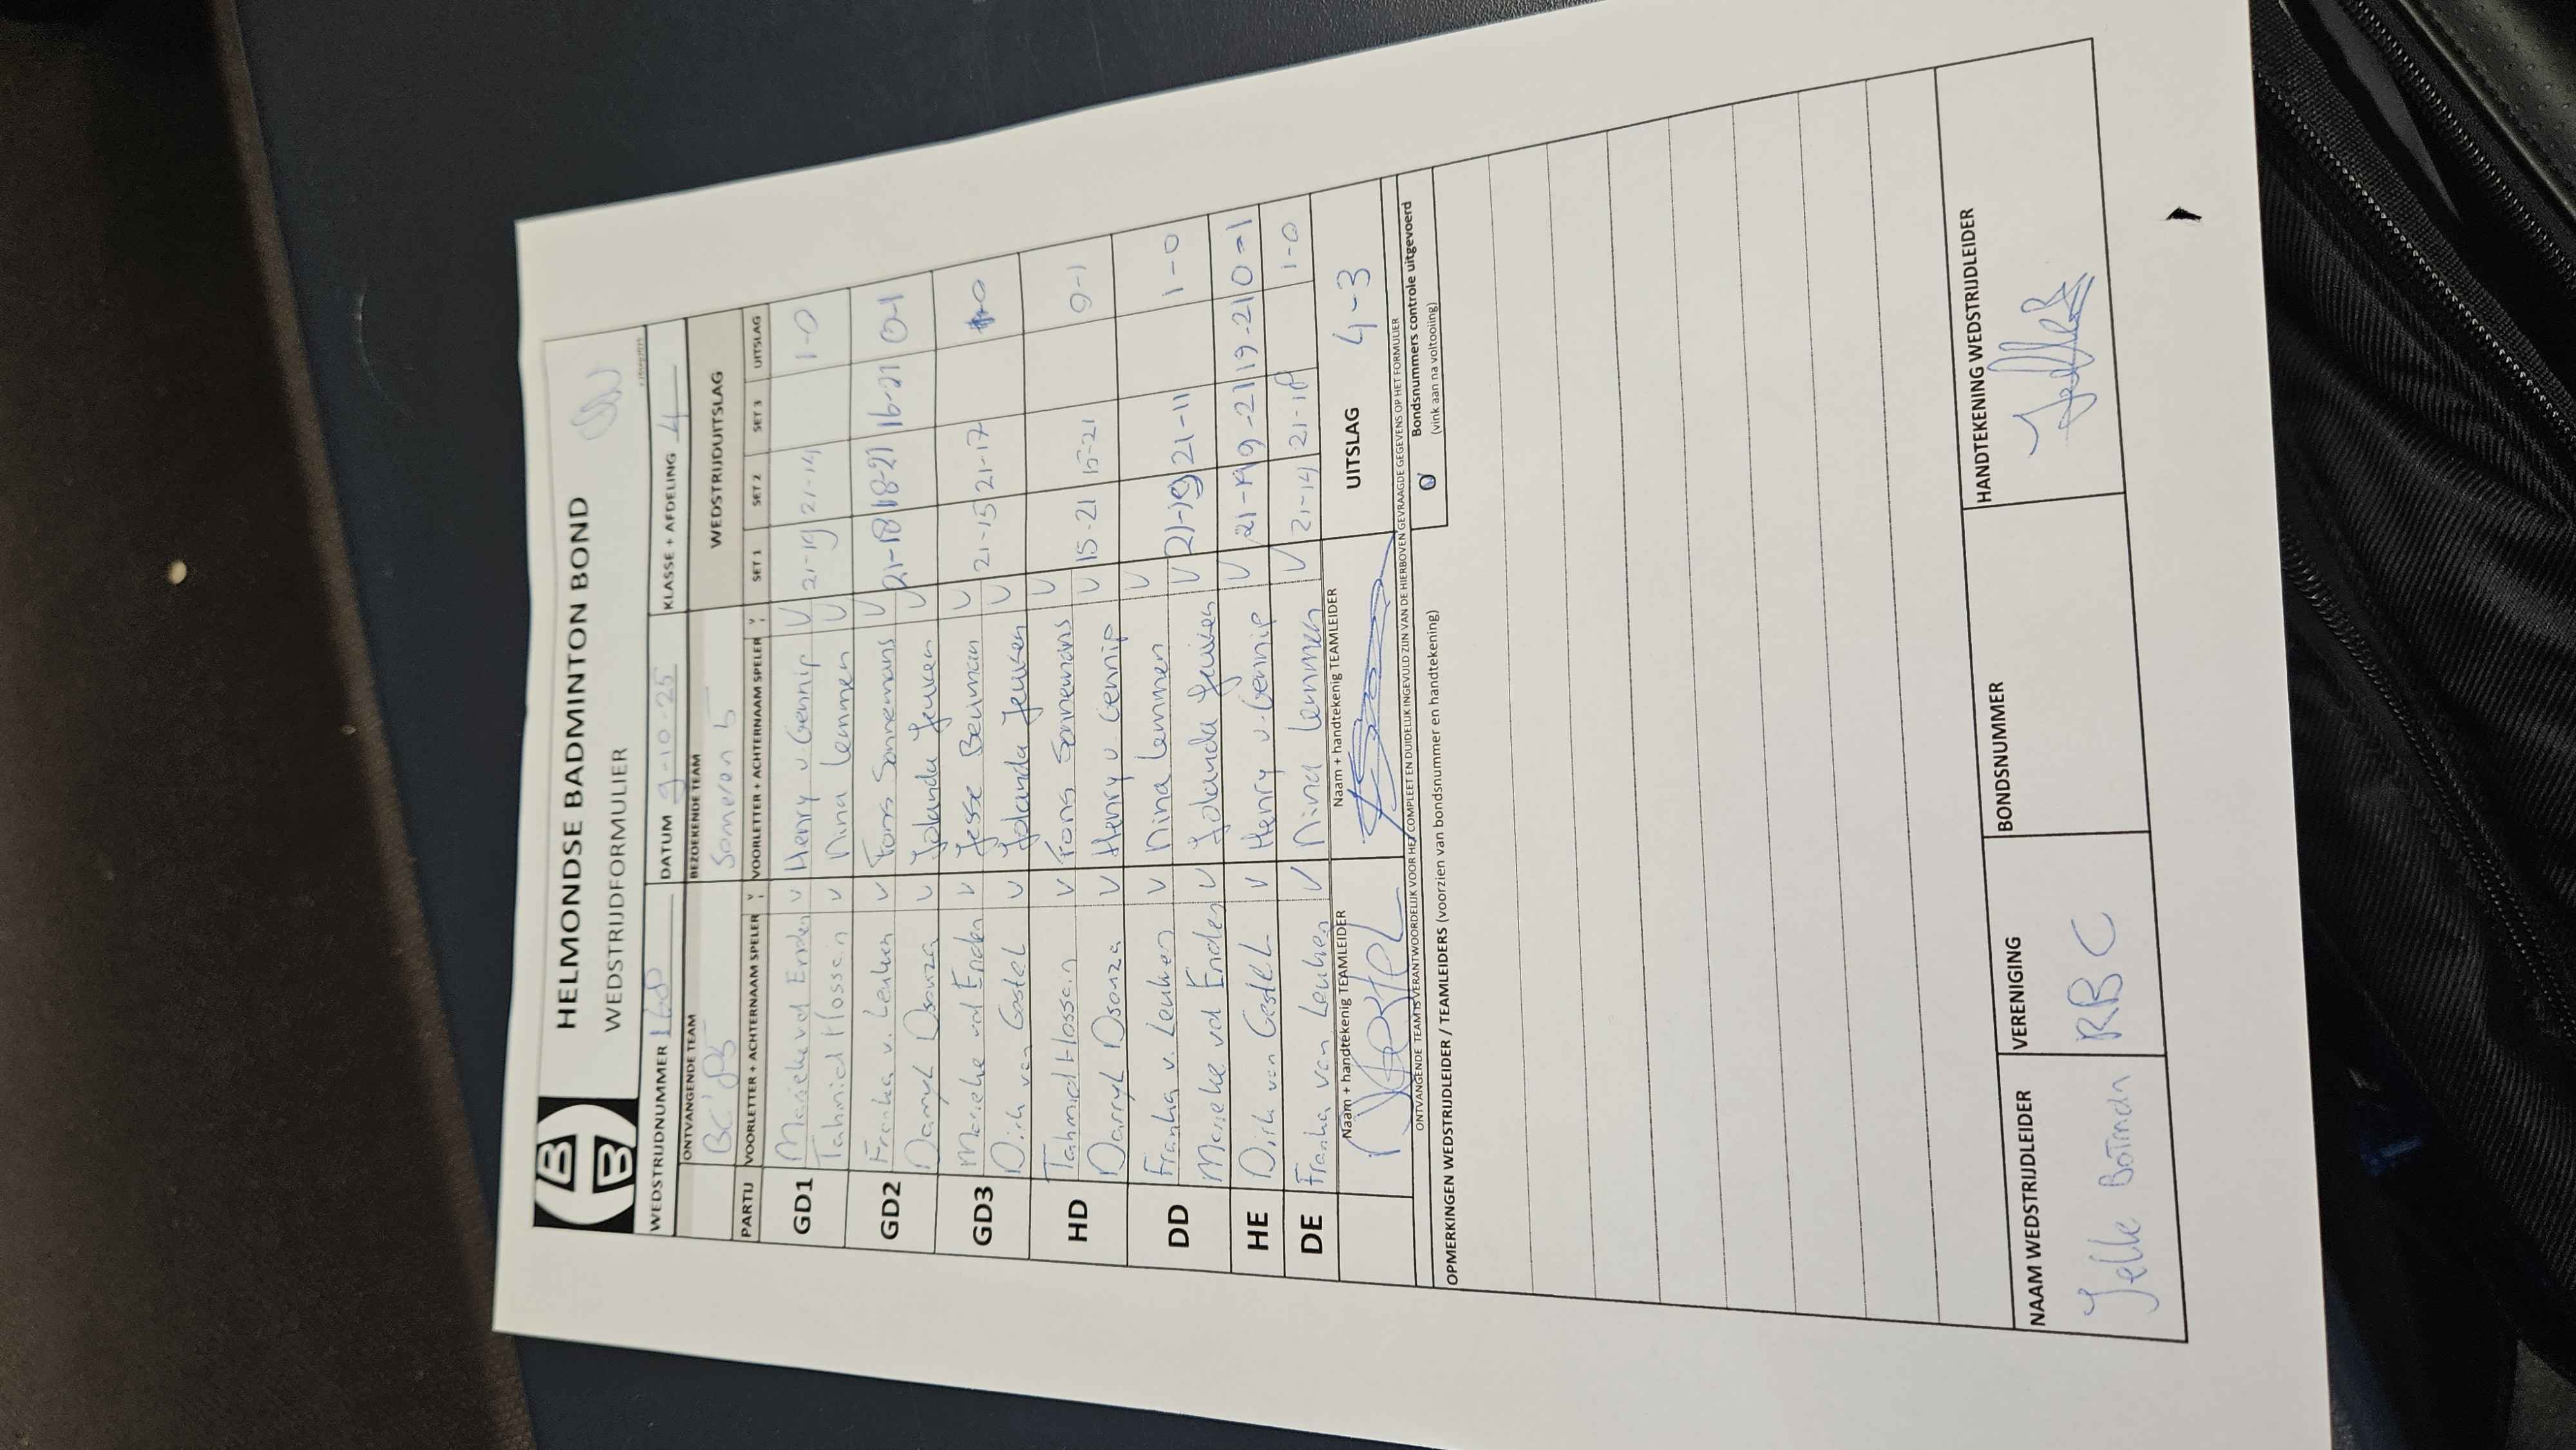 HELMONDSE BADMINTON BOND
WEDSTRIJDFORMULIER
WEDSTRIJDNUMMER DATUM 9-10-25 KLASSE + AFDELING 4
ONTVANGENDE TEAM BEZOEKENDE TEAM WEDSTRIJDUITSLAG
BC'85 Someren 5
PARTIJ VOORLETTER + ACHTERNAAM SPELER V VOORLETTER + ACHTERNAAM SPELER V SET 1 SET 2 SET 3 UITSLAG
GD1 Marieke vd Enden V Henry v. Gennip V 21-19 21-14 1-0
Tahmid Hossain V Nina Lemmen V
GD2 Franka v. Leuken V Fons Sonnemans V 21-18 18-21 16-21 0-1
Darryl Dsouza V Jolanda Jeuken V
GD3 Marieke vd Enden V Jesse Beijman V 21-15 21-17 1-0
Dirk van Gastel V Jolanda Jeuken V
HD Tahmid Hossain V Fons Sonnemans V 15-21 15-21 0-1
Darryl Dsouza V Henry v. Gennip V
DD Franka v. Leuken V Nina Lemmen V 21-19 21-11 1-0
Marieke vd Enden V Jolanda Jeuken V
HE Dirk van Gestel V Henry v. Gennip V 21-19 9-21 19-21 0-1
DE Franka van Leuken V Nina Lemmen V 21-14 21-18 1-0
Naam + handtekenig TEAMLEIDER Naam + handtekenig TEAMLEIDER UITSLAG 4-3
ONTVANGENDE TEAM IS VERANTWOORDELIJK VOOR HET COMPLEET EN DUIDELIJK INGEVULD ZIJN VAN DE HIERBOVEN GEVRAAGDE GEGEVENS OP HET FORMULIER
Bondsnummers controle uitgevoerd
(vink aan na voltooiing)
OPMERKINGEN WEDSTRIJDLEIDER / TEAMLEIDERS (voorzien van bondsnummer en handtekening)
NAAM WEDSTRIJDLEIDER VERENIGING BONDSNUMMER HANDTEKENING WEDSTRIJDLEIDER
Jelle Botman RBC